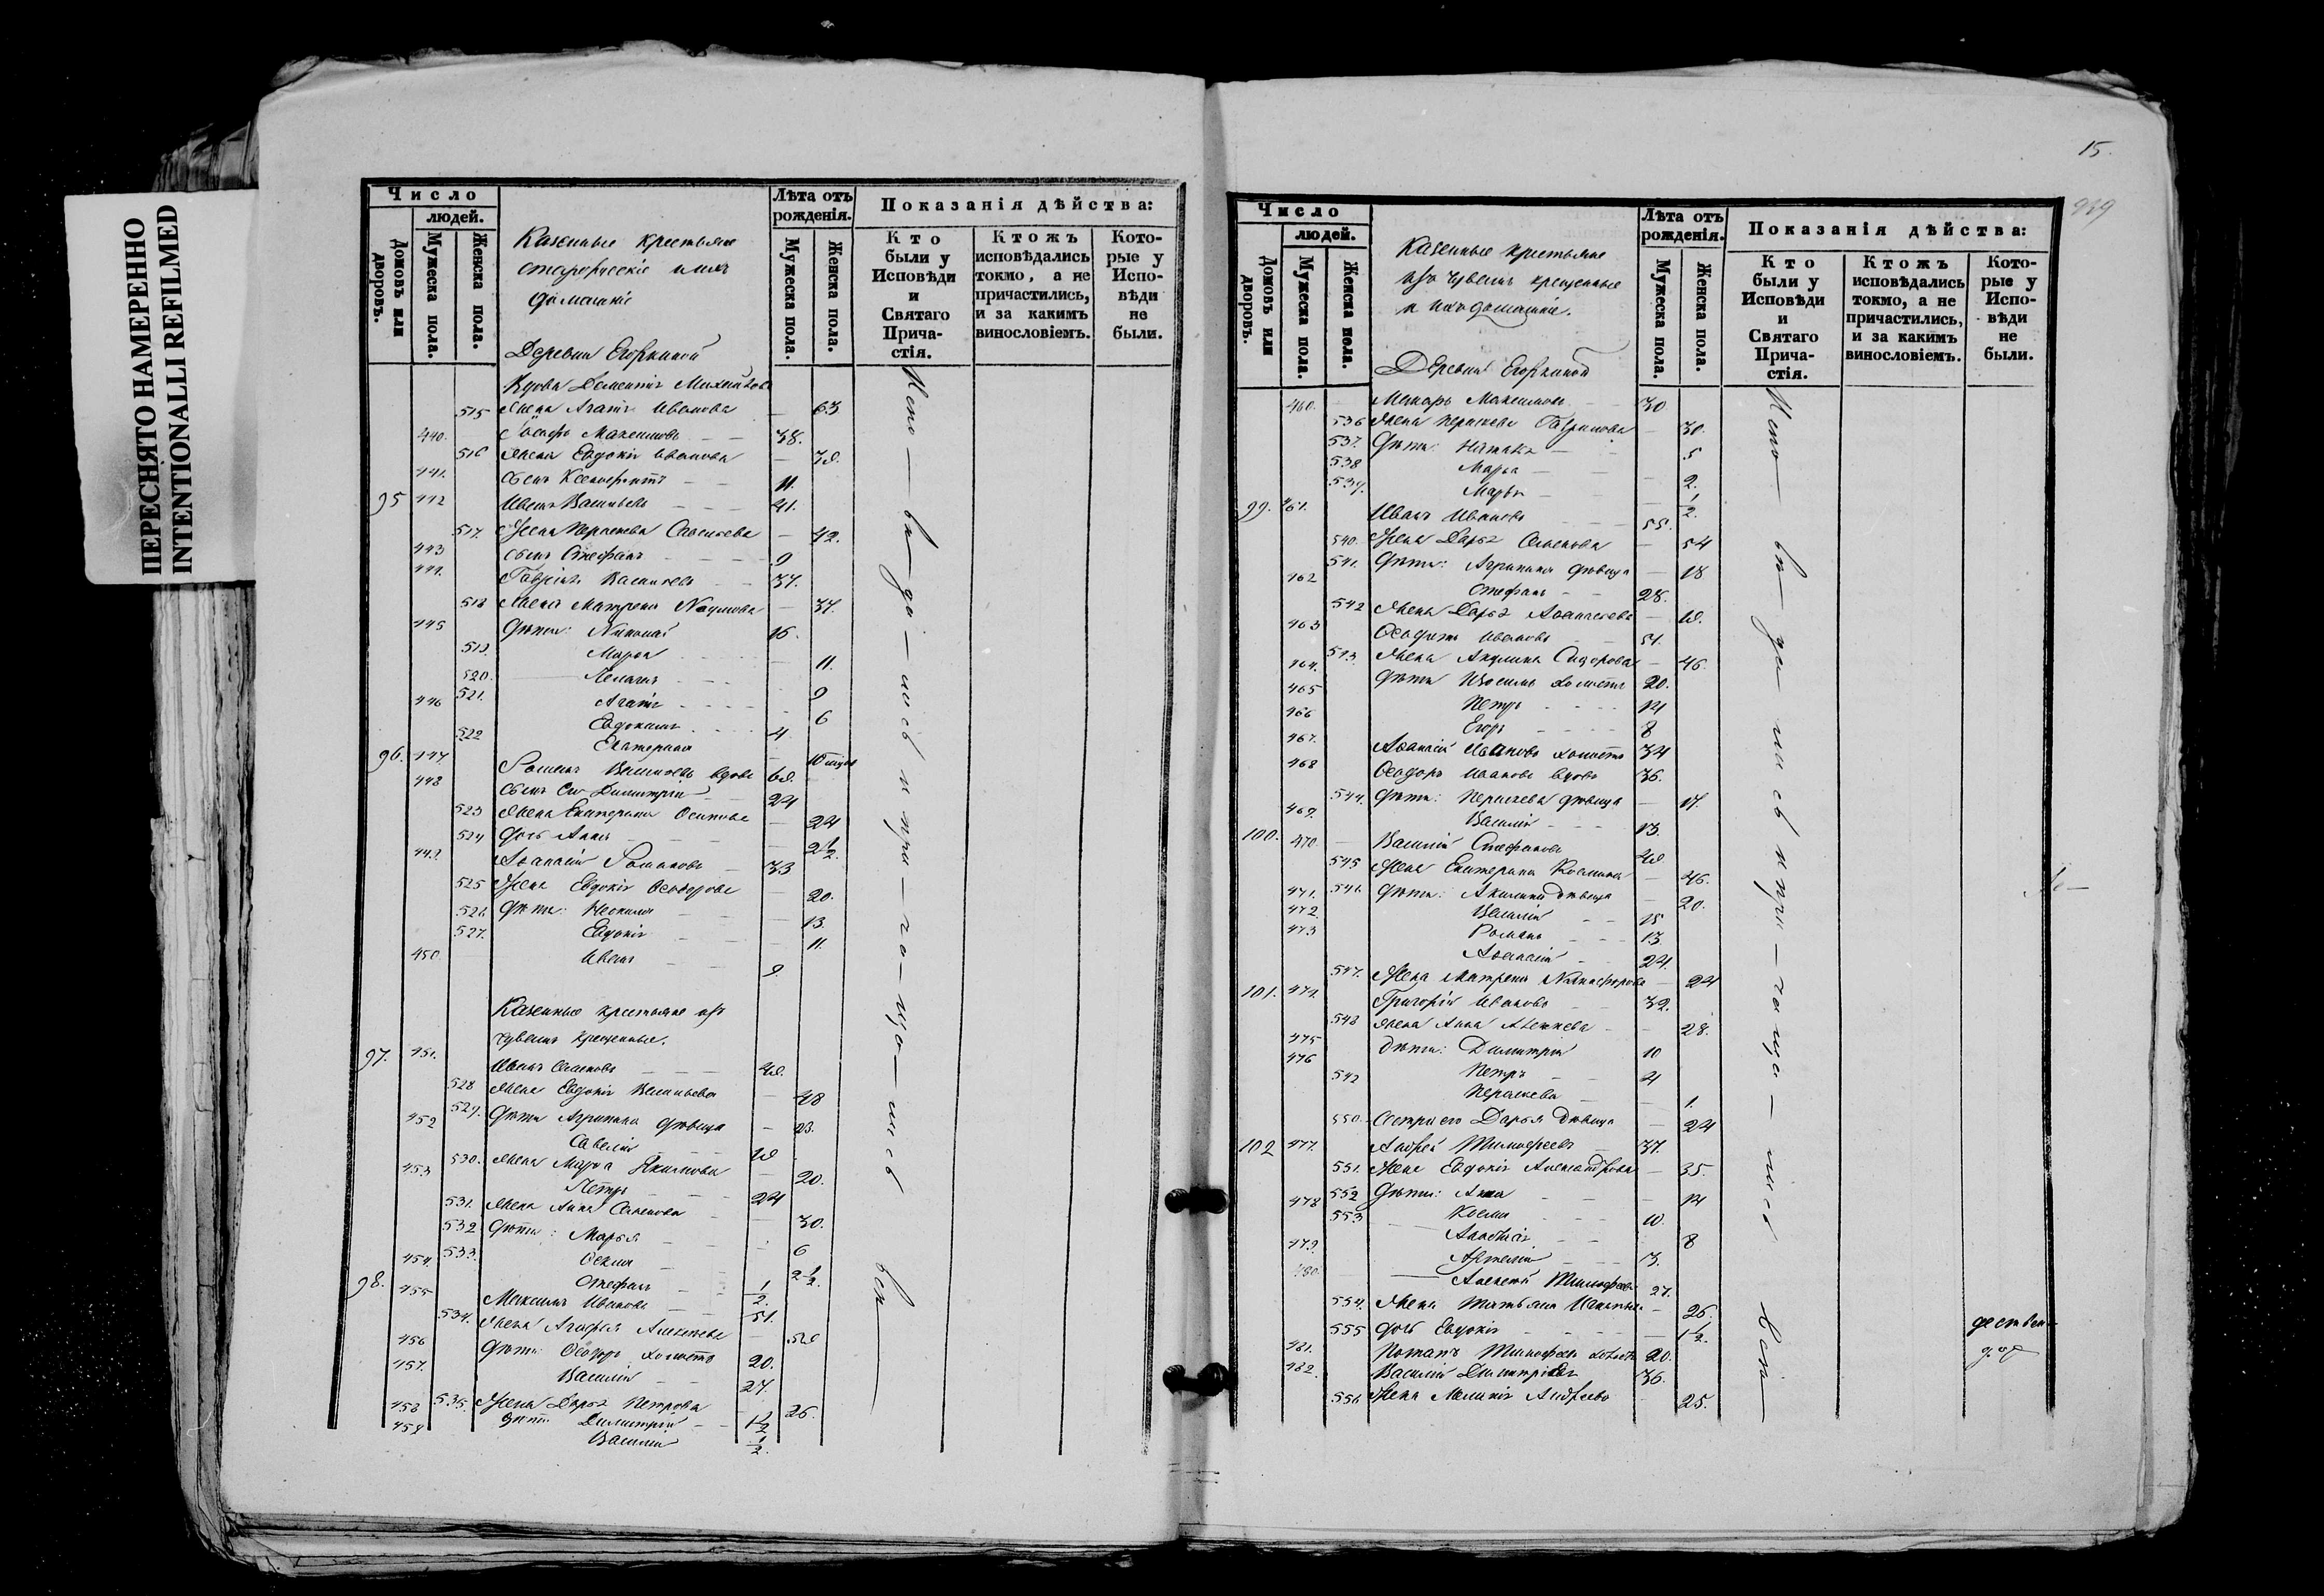 ПЕРЕСНЯТО НАМЕРЕННО
INTENTIONALLI REFILMED
Число
людей.
Домовъ или дворовъ.
Мужеска пола.
Женска пола.
Казенные крестьяне
домашніе
Деревни Егоркиной
Лѣта отъ рожденія.
Мужеска пола.
Женска пола.
Показанія дѣйства:
Кто были у Исповѣди и Святаго Прича-стія.
Ктожъ исповѣдались токмо, а не причастились, и за какимъ винословіемъ.
Кото-рые у Испо-вѣди не были.
515 Жена Агафія Иванова — 63
440. Максимовъ 38.
516 Жена Евдокія Иванова
441. Сынъ 11.
95 442 Иванъ Васильевъ 41.
517. Жена Параскева Савельева — 42.
443 Сынъ Стефанъ 9
444. Гавріилъ Васильевъ 37.
518 Жена Матрена Наумова — 37.
445 Дѣти: Николай 16.
519. Марья 11.
520. Пелагія 9
521. Агафія 6
446 Евдокимъ 4
522 Екатерина
96. 447 Романъ Васильевъ вдовъ
448 Сынъ его Димитрій 24
523 Жена Екатерина Осипова 24
524 дочь Анна 2 1/2.
449. Афанасій Романовъ 33
525 Жена Евдокія Феодорова 20.
526. Дѣти: 13.
527. Евдокія 11.
450. Иванъ 9
Казенные крестьяне изъ
чувашъ крещенные.
97. 451. Иванъ Семеновъ
528 Жена Евдокія Васильева 48
529. Дѣти Агрипина дѣвица 23.
452 Савелій
530. Жена Марѳа Якимова 20.
453 Петръ 24
531. Жена Анна Семенова 30.
532 Дѣти: Марья 6
533. 2 1/2.
454. Стефанъ 1/2.
98. 455 Максимъ Ивановъ 51.
534. Жена Агафья Алексѣева
456 Дѣти: Ѳеодоръ холостъ 20.
457. Василій 27.
535. Жена Дарья Петрова 26.
458 Дѣти Димитрій 1 1/2
459 Василій 1/2.
15.
939
Число
людей.
Домовъ или дворовъ.
Мужеска пола.
Женска пола.
Казенные крестьяне
изъ чувашъ крещенные
и ихъ домашніе.
Деревни Егоркиной
Лѣта отъ рожденія.
Мужеска пола.
Женска пола.
Показанія дѣйства:
Кто были у Исповѣди и Святаго Прича-стія.
Ктожъ исповѣдались токмо, а не причастились, и за какимъ винословіемъ.
Кото-рые у Испо-вѣди не были.
460. Макаръ Максимовъ 30
536 Жена Параскева Гаврилова — 30.
537. Дѣти: Наталья 5
538 Марья 2.
539. Марѳа 1/2.
99. 461. Иванъ Ивановъ 55.
540. Жена Дарья Семенова — 54
541. Дѣти: Агрипина дѣвица — 18
462 Стефанъ 28.
542 Жена Дарья Афанасьева
463 Ивановъ 51.
543. Жена Акулина Сидорова — 46.
464. Дѣти холостъ 20.
465 Петръ 14
466 Егоръ 8
467. Афанасій Ивановъ холостъ 34
468 Ѳеодоръ Ивановъ вдовъ 36.
544. Дѣти: Параскева дѣвица — 17.
469. Василій 13.
100. 470. Василій Стефановъ
545 Жена Екатерина Козмина 46.
546. Дѣти: Акилина дѣвица 20.
471. Василій 15
472. Романъ 13
473 Афанасій 24.
547. Жена Матрена Никифорова — 24
101. 474. Григорій Ивановъ 32.
548 Жена Анна Алексѣева 28.
475 Дѣти: Димитрій 10
476 Петръ 4
542 Параскева 1.
550. Сестра его Дарья дѣвица 24
102 477. Андрей Тимофеевъ 37.
551. Жена Евдокія Александрова — 35.
552 Дѣти: Анна 14
478 Козма 10.
553 8
479. 3.
480. Алексѣй Тимофеевъ 27.
554. Жена Татьяна 26.
555 дочь Евдокія 1 1/2.
481. Романъ Тимофеевъ холостъ 20.
482. Василій Димитріевъ 36.
556 Жена Андреева 25.